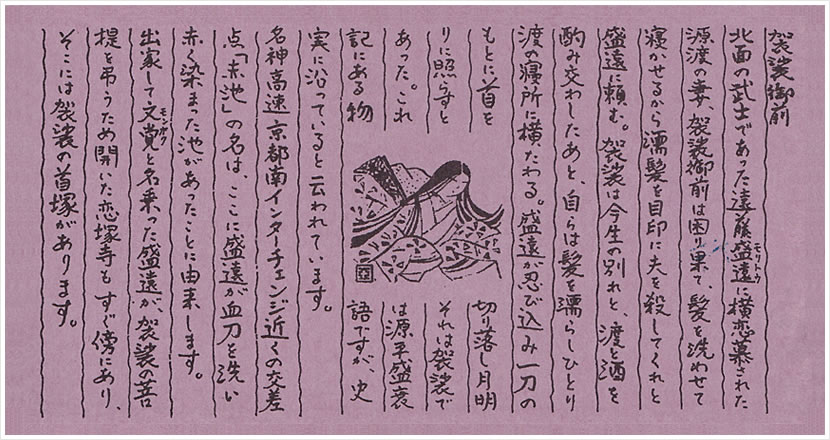 袈裟御前
モリトウ
北面の武士であった遠藤盛遠に横恋慕された
源渡の妻、袈裟御前は困り果て、髪を洗わせて
寝かせるから濡髪を目印に夫を殺してくれと
盛遠に頼む。袈裟は今生の別れと、渡と酒を
酌み交わしたあと、自らは髪を濡らしひとり
渡の寝所に横たわる。盛遠が忍び込み一刀の
もとに首を切り落し月明
りに照らすとそれは袈裟で
あった。これは源平盛衰
記にある物語ですが、史
実に沿っていると云われています。
名神高速京都南インターチェンジ近くの交差
点「赤池」の名は、ここに盛遠が血刀を洗い
赤く染まった池があったことに由来します。
モンガク
出家して文覚と名乗った盛遠が、袈裟の菩
提を弔うため開いた恋塚寺もすぐ傍にあり、
そこには袈裟の首塚があります。